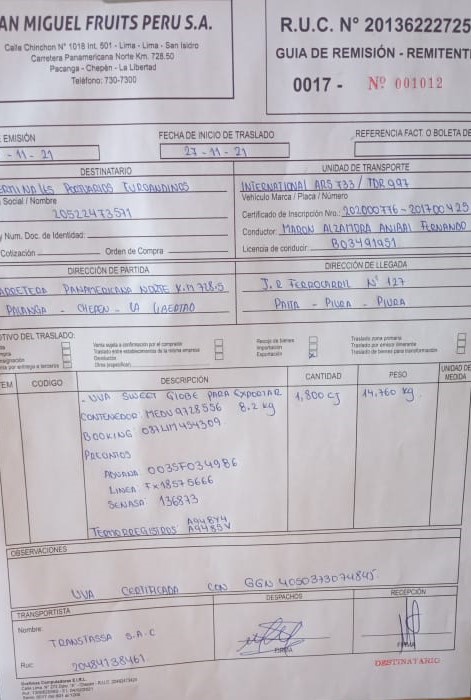 AN MIGUEL FRUITS PERU S.A.
Calle Chinchon N° 1018 Int. 501 - Lima - Lima - San Isidro
Carretera Panamericana Norte Km. 728.50
Pacanga - Chepén - La Libertad
Teléfono: 730-7300
R.U.C. N° 20136222725
GUIA DE REMISIÓN - REMITENT
0017 - Nº 001012
EMISIÓN
- 11 - 21
FECHA DE INICIO DE TRASLADO
27 - 11 - 21
REFERENCIA FACT. O BOLETA DE
DESTINATARIO
ERMINALES PORTUARIOS EUROANDINOS
Social / Nombre
20522473571
Num. Doc. de Identidad:
Cotización
Orden de Compra
UNIDAD DE TRANSPORTE
INTERNATIONAL ARS 733 / TDR 997
Vehículo Marca / Placa / Número
Certificado de Inscripción Nro.: 202000776 - 201700425
Conductor: MARON ALZAMORA ANIBAL FERNANDO
Licencia de conducir: B03491951
DIRECCIÓN DE PARTIDA
ARRETERA PANAMERICANA NORTE Km 728.5
PACANGA - CHEPEN - LA LIBERTAD
DIRECCIÓN DE LLEGADA
J.R FERROCARRIL N° 127
PAITA - PIURA - PIURA
TIVO DEL TRASLADO:
Venta sujeta a confirmación por el comprador
Traslado entre establecimientos de la misma empresa
Devolución
Recojo de bienes
Importación
Exportación
Traslado zona primaria
Traslado por emisor itinerante
Traslado de bienes para transformación
EM
CODIGO
DESCRIPCIÓN
CANTIDAD
PESO
UNIDAD DE MEDIDA
- UVA SWEET GLOBE PARA EXPORTAR
1,800 cj
14.760 kg
CONTENEDOR: MEDU 9728556 8.2 kg
BOOKING: 037LIM454309
PRECINTOS
ADUANA 0035F034986
LINEA Fx18575666
SENASA 136873
TERMORREGISTROS A948Y4
A9485V
OBSERVACIONES
UVA CERTIFICADA CON GGN 4050373074845.
TRANSPORTISTA
DESPACHOS
RECEPCIÓN
Nombre:
TRANSTASSA S.A.C
FIRMA
FIRMA
Ruc: 20484138461
DESTINATARIO